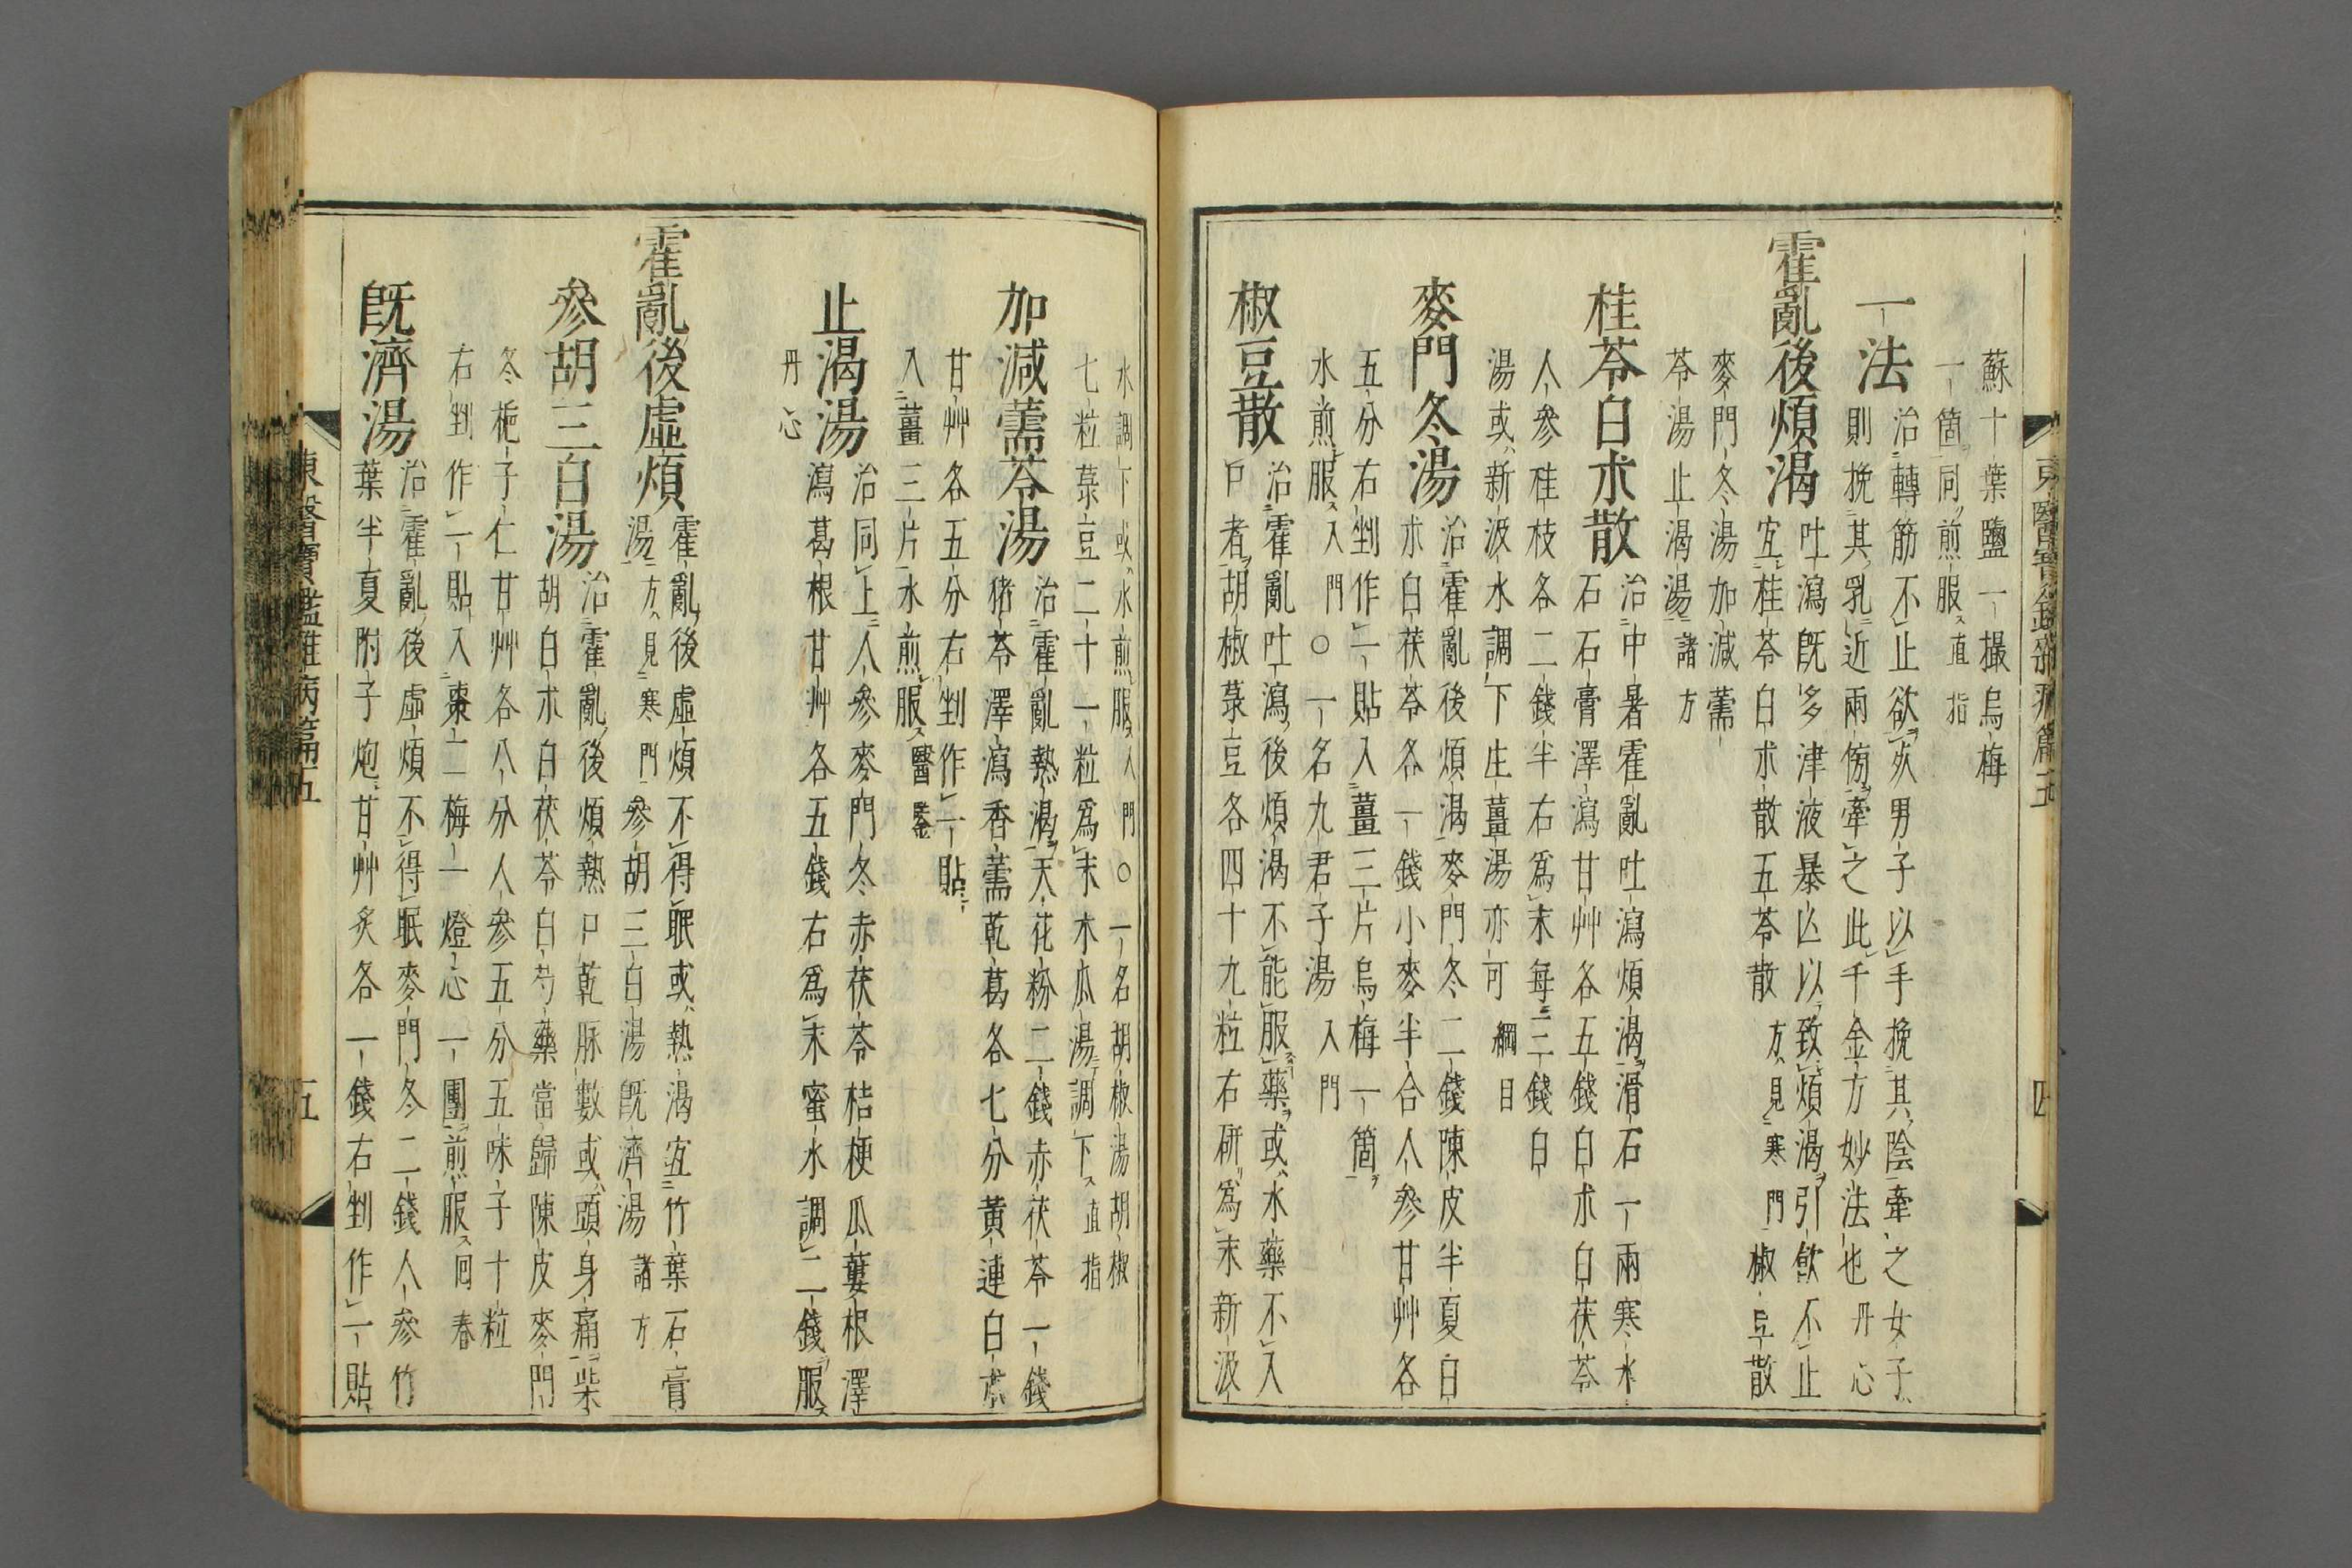 東醫寶鑑雜病篇五
四
蘇十葉鹽一撮烏梅
一箇同煎服直指
一法
治轉筋不止欲灰男子以手挽其陰牽之女子
則挽其乳近兩傍牽之此千金方妙法也丹心
霍亂後煩渴
吐瀉旣多津液暴亾以致煩渴引飮不止
宜桂苓白朮散五苓散方見寒門椒豆散
麥門冬湯加減薷
苓湯止渴湯諸方
桂苓白朮散
治中暑霍亂吐瀉煩渴滑石一兩寒水
石石膏澤瀉甘艸各五錢白朮白茯苓
人參桂枝各二錢半右爲末每三錢白
湯或新汲水調下生薑湯亦可綱目
麥門冬湯
治霍亂後煩渴麥門冬二錢陳皮半夏白
朮白茯苓各一錢小麥半合人參甘艸各
五分右剉作一貼入薑三片烏梅一箇
水煎服入門○一名九君子湯入門
椒豆散
治霍亂吐瀉後煩渴不能服藥或水藥不入
口者胡椒菉豆各四十九粒右硏爲末新汲
水調下或水煎服入門○一名胡椒湯胡椒
七粒菉豆二十一粒爲末木瓜湯調下直指
加減薷苓湯
治霍亂熱渴天花粉二錢赤茯苓一錢
猪苓澤瀉香薷乾葛各七分黃連白朮
甘艸各五分右剉作一貼
入薑三片水煎服醫鑑
止渴湯
治同上人參麥門冬赤茯苓桔梗瓜蔞根澤
瀉葛根甘艸各五錢右爲末蜜水調二錢服
丹心
霍亂後虛煩
霍亂後虛煩不得眠或熱渴宜竹葉石膏
湯方見寒門參胡三白湯旣濟湯諸方
參胡三白湯
治霍亂後煩熱口乾脉數或頭身痛柴
胡白朮白茯苓白芍藥當歸陳皮麥門
冬梔子仁甘艸各八分人參五分五味子十粒
右剉作一貼入棗二梅一燈心一團煎服回春
旣濟湯
治霍亂後虛煩不得眠麥門冬二錢人參竹
葉半夏附子炮甘艸炙各一錢右剉作一貼
東醫寶鑑雜病篇五
五